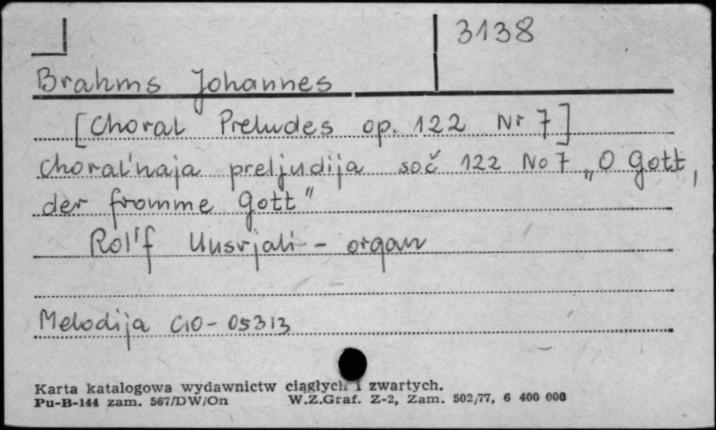 3138
Brahms Johannes
[Choral Preludes op. 122 Nr 7]
Choral'naja preljudija soč 122 No 7 „O Gott,
der fromme Gott"
Rol'f Uusvjali - organ
Melodija C10-05313
Karta katalogowa wydawnictw ciągłych i zwartych.
Pu-B-144 zam. 567/DW/On W.Z.Graf. Z-2, Zam. 502/77, 6 400 000